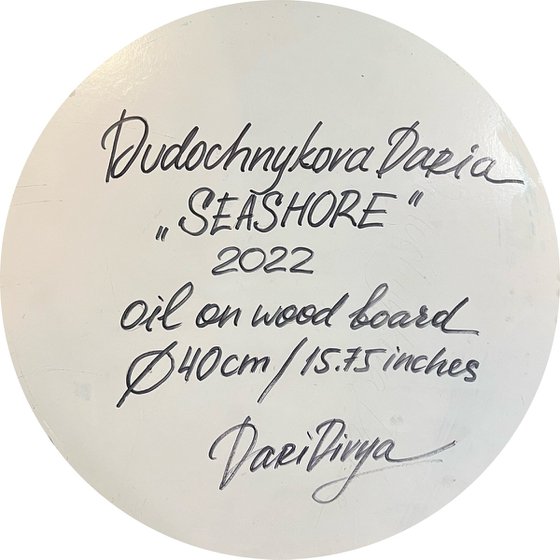 Dudochnykova Daria
„SEASHORE"
2022
oil on wood board
Ø40cm/15.75 inches
DariDivya